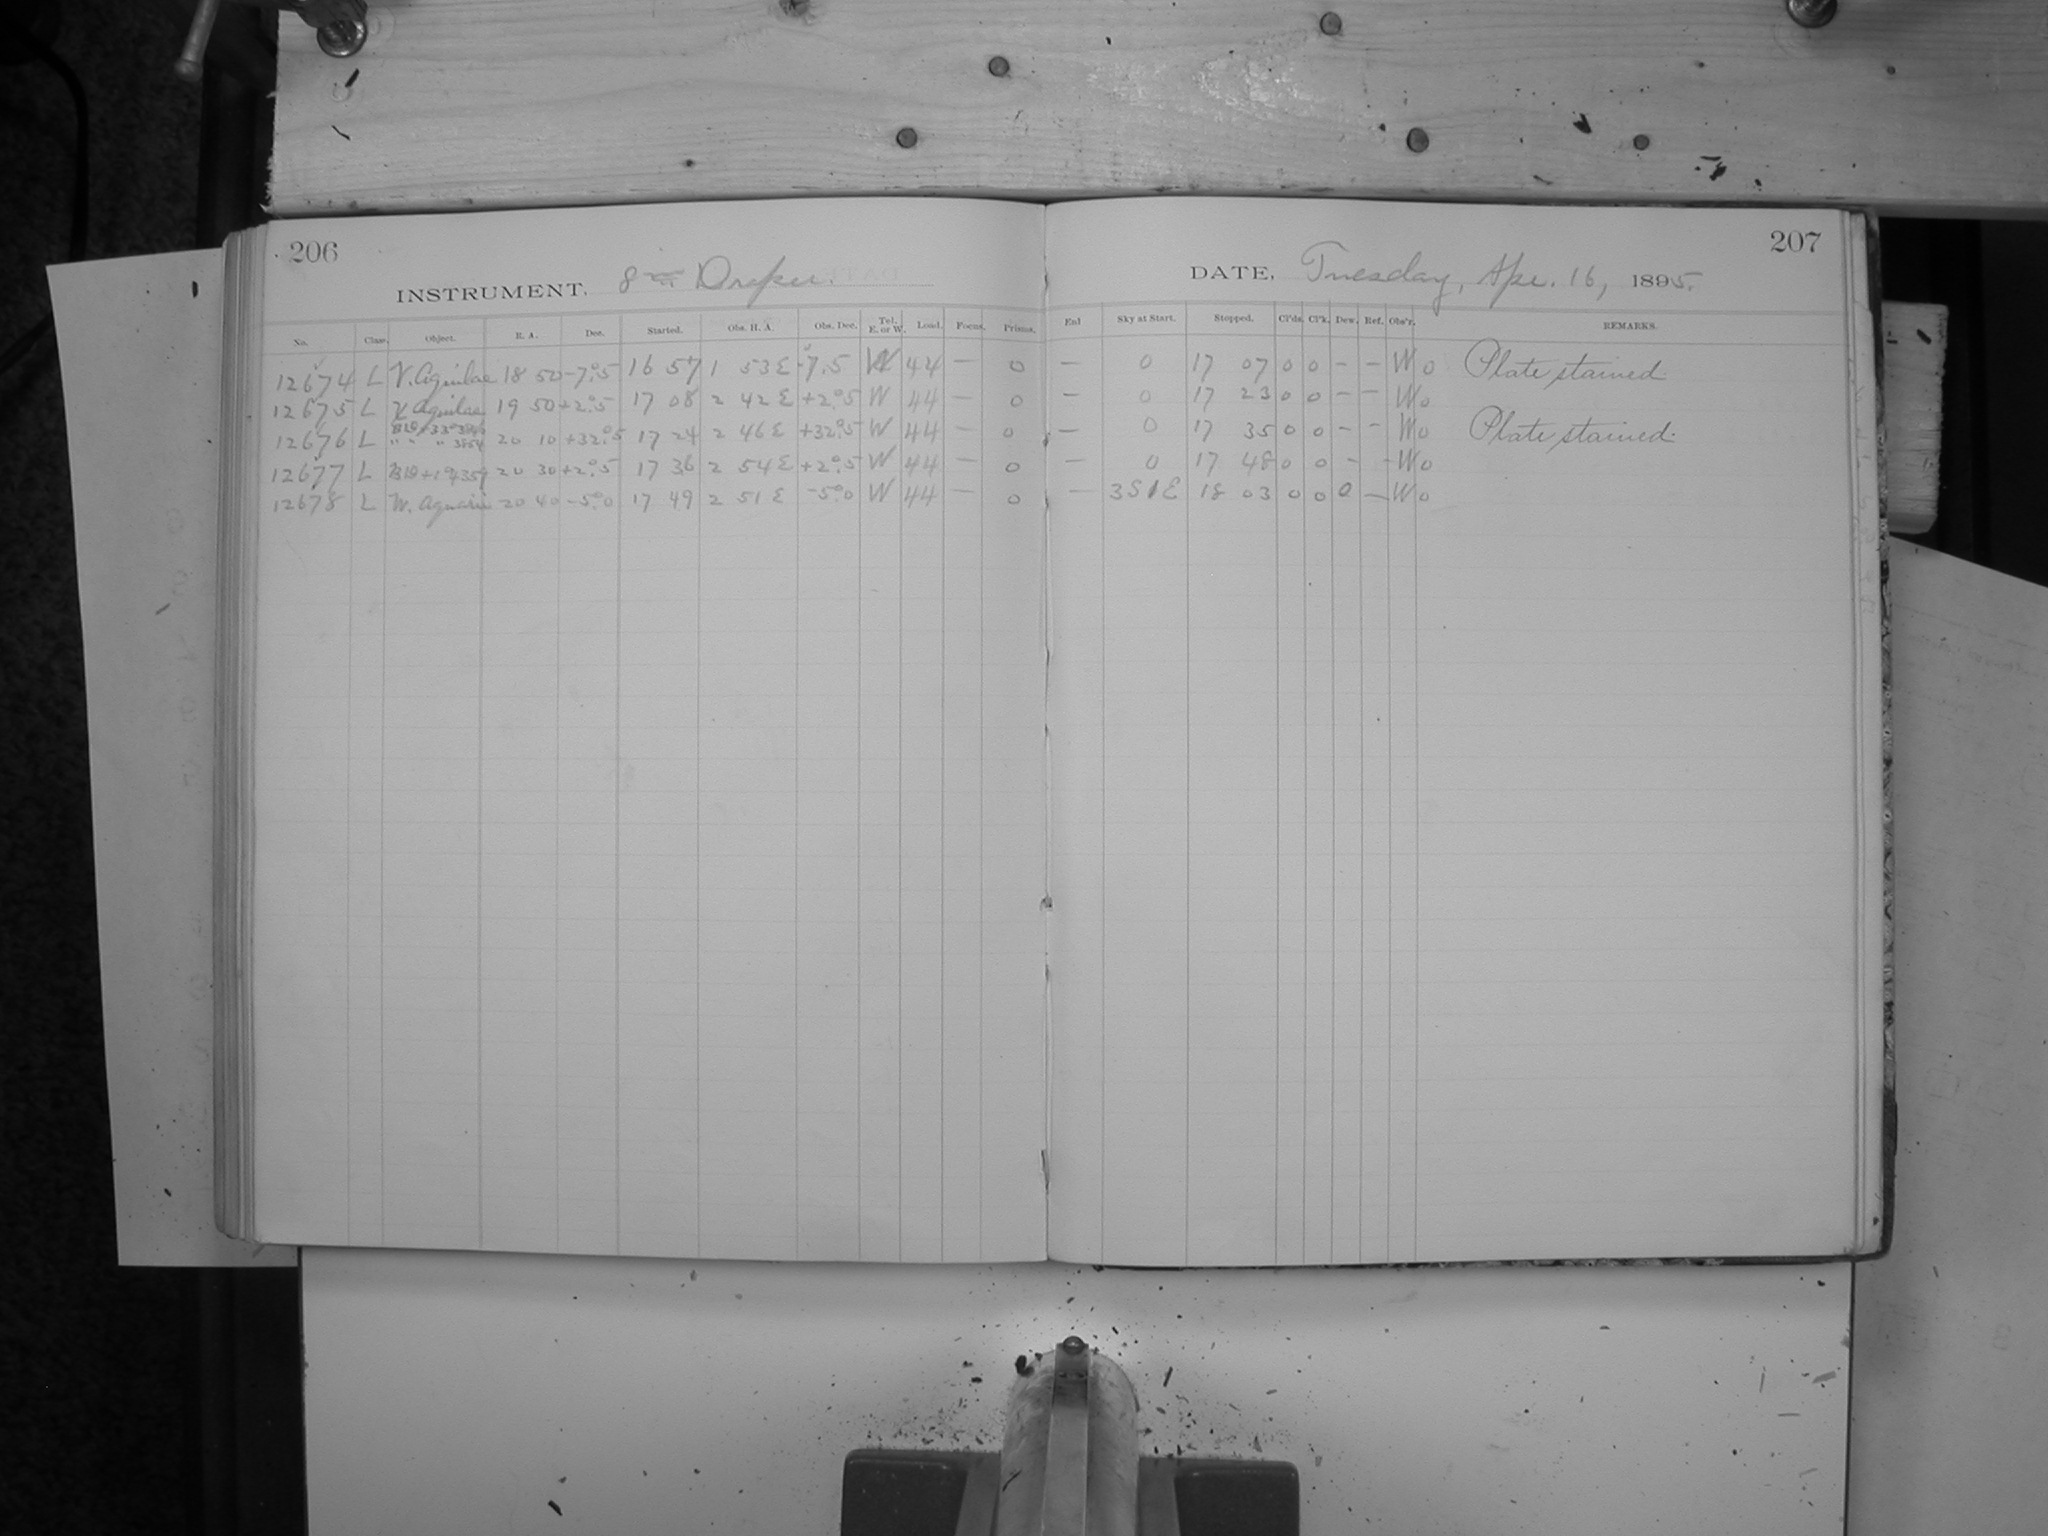 206
INSTRUMENT, 8 in Draper.
No. Class. Object. R. A. Dec. Started. Obs. H. A. Obs. Dec. Tel. E. or W. Load. Focus. Prisms.
12674 L V. Aquilae 18 50 -7°.5 16 57 1 53 E -7°.5 W 44 — 0
12675 L X Aquilae 19 50 +2°.5 17 08 2 42 E +2°.5 W 44 — 0
12676 L " " " 3864 20 10 +32°.5 17 24 2 46 E +32°.5 W 44 — 0
12677 L BD +1° 4359 20 30 +2°.5 17 36 2 54 E +2°.5 W 44 — 0
12678 L W. Aquarii 20 40 -5°.0 17 49 2 51 E -5°.0 W 44 — 0
207
DATE, Tuesday, Apr. 16, 1895.
End Sky at Start. Stopped. Cl'ds. Cl'k. Dew. Ref. Obs'r. REMARKS.
— 0 17 07 0 0 - - W 0 Plate stained.
— 0 17 23 0 0 - - W 0
— 0 17 35 0 0 - - W 0 Plate stained.
— 0 17 48 0 0 - - W 0
— 3S1E 18 03 0 0 0 — W 0